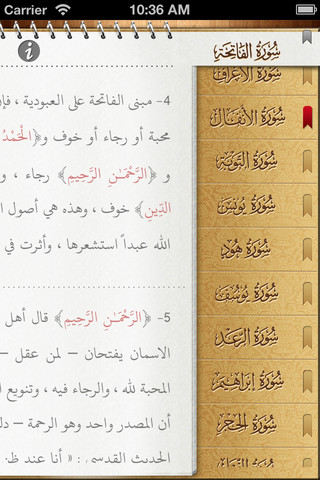 Carrier 10:36 AM
4- مبنى الفاتحة على العبودية ، فإن
محبة أو رجاء أو خوف و﴿الْحَمْدُ
و ﴿الرَّحْمَٰنِ الرَّحِيمِ﴾ رجاء ، و
الدِّينِ﴾ خوف ، وهذه هي أصول ا
الله عبداً استشعرها ، وأثرت في
5- ﴿الرَّحْمَٰنِ الرَّحِيمِ﴾ قال أهل
الاسمان يفتحان – لمن عقل –
المحبة لله ، والرجاء فيه ، وتنويع
أن المصدر واحد وهو الرحمة – دل
الحديث القدسي : « أنا عند ظن
سُورَةُ الفَاتِحَة
سُورَةُ الأَعْرَاف
سُورَةُ الأَنْفَال
سُورَةُ التَّوْبَة
سُورَةُ يُونُس
سُورَةُ هُود
سُورَةُ يُوسُف
سُورَةُ الرَّعْد
سُورَةُ إِبْرَاهِيم
سُورَةُ الحِجْر